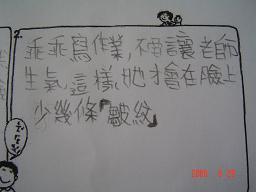 2.
乖乖寫作業,不會讓老師
生氣,這樣,他才會在臉上
少幾條「皺紋」